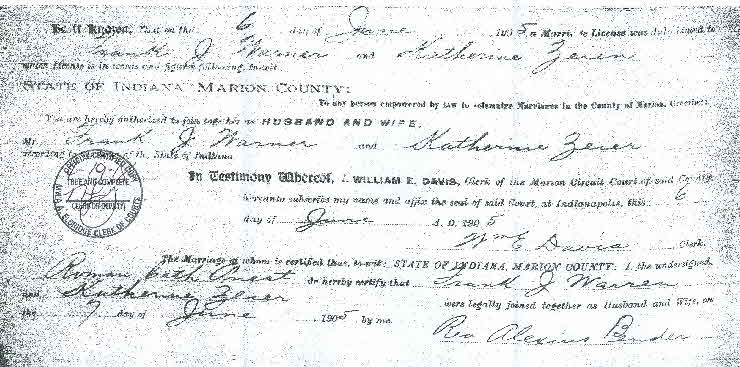 Be it Known, That on the 6 day of June 1905, a Marriage License was duly issued to
Frank J Warner and Katherine Zeier
which License is in words and figures following, to-wit:
STATE OF INDIANA MARION COUNTY:
To any person empowered by law to solemnize Marriages in the County of Marion, Greeting:
You are hereby authorized to join together as HUSBAND AND WIFE,
Mr. Frank J Warner and Katherine Zeier
according to the laws of the State of Indiana
In Testimony Whereof, I, WILLIAM E. DAVIS, Clerk of the Marion Circuit Court of said County,
hereunto subscribe my name and affix the seal of said Court, at Indianapolis, this 6
day of June A. D. 1905
Wm E Davis Clerk.
TRUE AND COMPLETE
CLERK OF COURTS
The Marriage of whom is certified thus, to-wit: STATE OF INDIANA, MARION COUNTY: I, the undersigned,
Roman Cath Priest do hereby certify that Frank J Warren
and Katherine Zeier were legally joined together as Husband and Wife, on
the day of June 1905 by me. Rev Alexius Bender